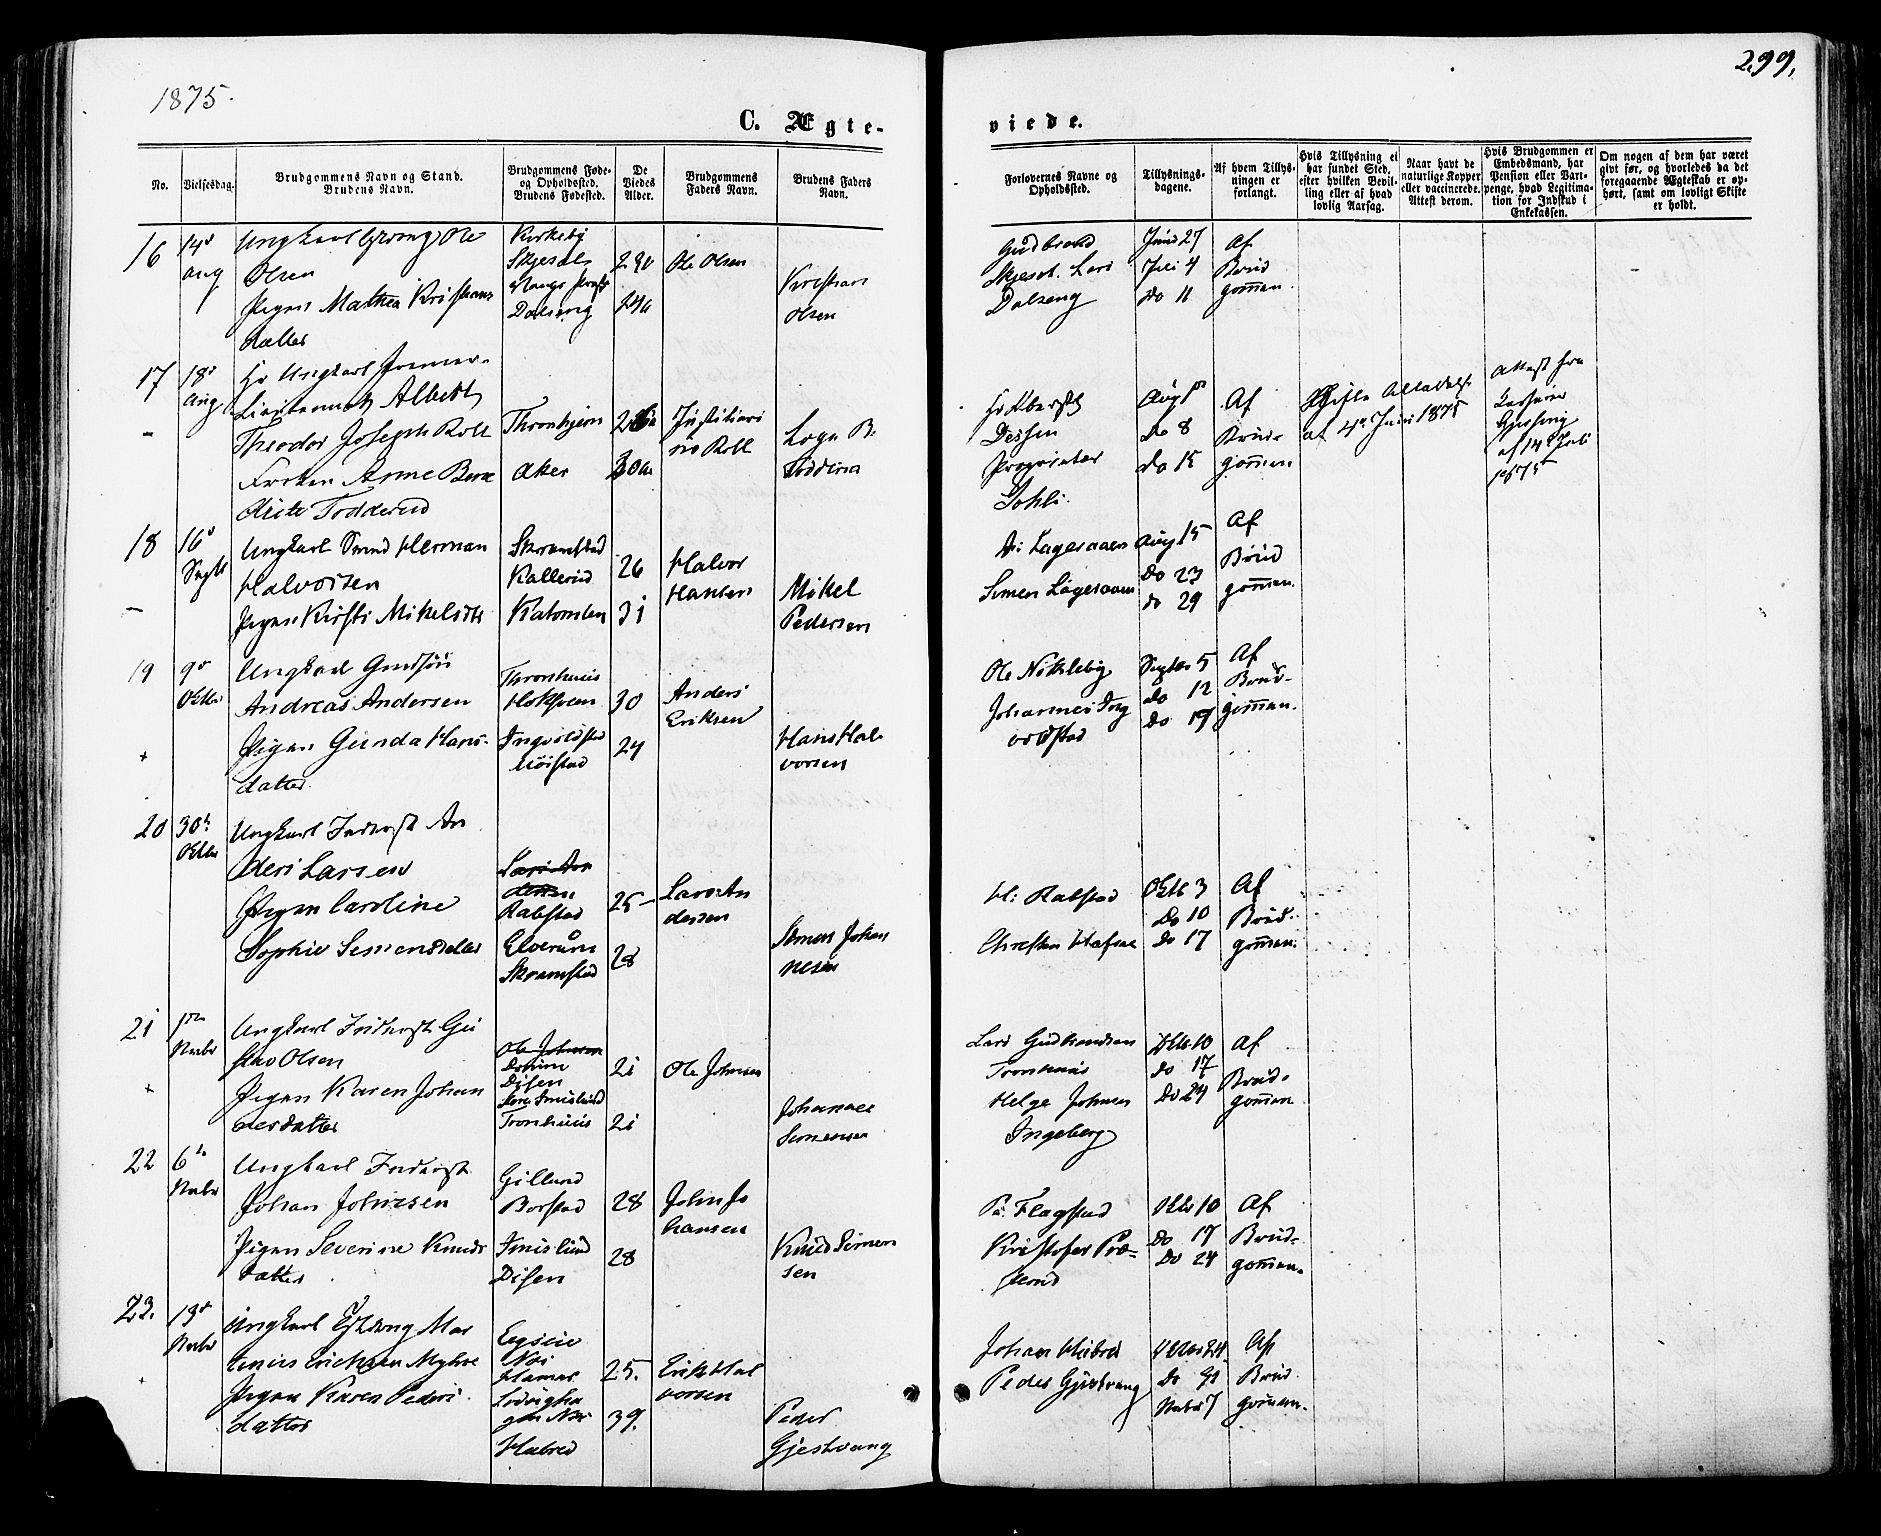 1875.
299.
C. Ægte-
viede.
No.
Vielsesdag.
Brudgommens Navn og Stand.
Brudens Navn.
Brudgommens Føde-
og Opholdssted.
Brudens Fødested.
De
Viedes
Alder.
Brudgommens
Faders Navn.
Brudens Faders
Navn.
Forlovernes Navne og
Opholdssted.
Tillysnings-
dagene.
Af hvem Tillys-
ningen er
forlangt.
Hvis Tillysning ei
har fundet Sted,
efter hvilken Bevil-
ling eller af hvad
lovlig Aarsag.
Naar havt de
naturlige Kopper
eller vaccinerede.
Attest derom.
Hvis Brudgommen er
Embedsmand, har
Pension eller Vart-
penge, hvad Legitima-
tion for Indskud i
Enkekassen.
Om nogen af dem har været
givt før, og hvorledes da det
foregaaende Ægteskab er op-
hørt, samt om lovligt Skifte
er holdt.
16
14d
Aug
Ungkarl Ole
Olsen
Pigen Mathea Kristians
datter
Kirkeby
Dalseng
Ole Olsen
Kristian
Olsen
Gudbrand
Lars
Dalseng
Juni 27
Juli 4
Do 11
Af
Brud
gommen.
17
18d
Aug
Hr Ungkarl Premier-
Lieutenant Albert
Theodor Joseph Roll
Frøken Anne Bene
dicte Todderud
Thronhjem
Aker
Justitiari
us Roll
Todderud
Proprietær
Aug 1
Do 8
Do 15
Af
Brud-
gommen
af 4de Juni 1875
Attest fra
af 14d Juli
1875
18
16d
Septb
Ungkarl Svend Herman
Halvorsen
Pigen Kirsti Mikelsdtr
Skramstad
Kallerud
26
31
Halvor
Hansen
Mikel
Pedersen
Simen Lageraaen
Aug 15
Do 23
Do 29
Af
Brud
gommen.
19
9d
Oktbr
Ungkarl
Andreas Andersen
Pigen Gunda Hans-
datter
Thronhuus
Ingvoldstad
30
24
Anders
Eriksen
Hans Hal-
vorsen
Ole Nöklebÿ
Johannes Ing
voldstad
Septbr 5
Do 12
Do 19
Af
Brud-
gommen.
20
30te
Oktbr
Ungkarl Inderst An
ders Larsen
Pigen Caroline
Sophie Simensdatter
Rabstad
Elverum
Skramstad
25
28
Lars An
dersen
Simen Johan
nesen
H: Rabstad
Oktb 3
Do 10
Do 17
Af
Brud-
gommen.
21
1ste
Novbr
Ungkarl Inderst Gu
stav Olsen
Pigen Karen Johan
nesdatter
Disen
Tronhuus
21
21
Ole Johnsen
Johannes
Simensen
Lars Gudbrandsen
Tronhuus
Helge Johnsen
Ingeberg
Oktb 10
Do 17
Do 24
Af
Brud-
gommen
22
6te
Novbr
Ungkarl Inderst
Johan Johnsen
Pigen Severine Knuds
datter
Gillund
Borstad
Imislund
Disen
28
28
John Jo
hansen
Knud Simen
sen
P: Flagstad
Kristofer Præ-
sterud
Oktb 10
Do 17
Do 24
Af
Brud-
gommen.
23.
13d
Novbr
Ungkarl
Pigen Karen Peders-
datter
Hamar
Hubred
25.
39.
Erik Hal
vorsen
Peder
Gjestvang
Johan Hubred
Peder Gjestvang
Oktbr 24
Do 31
Novbr 7
Af
Brud-
gommen.